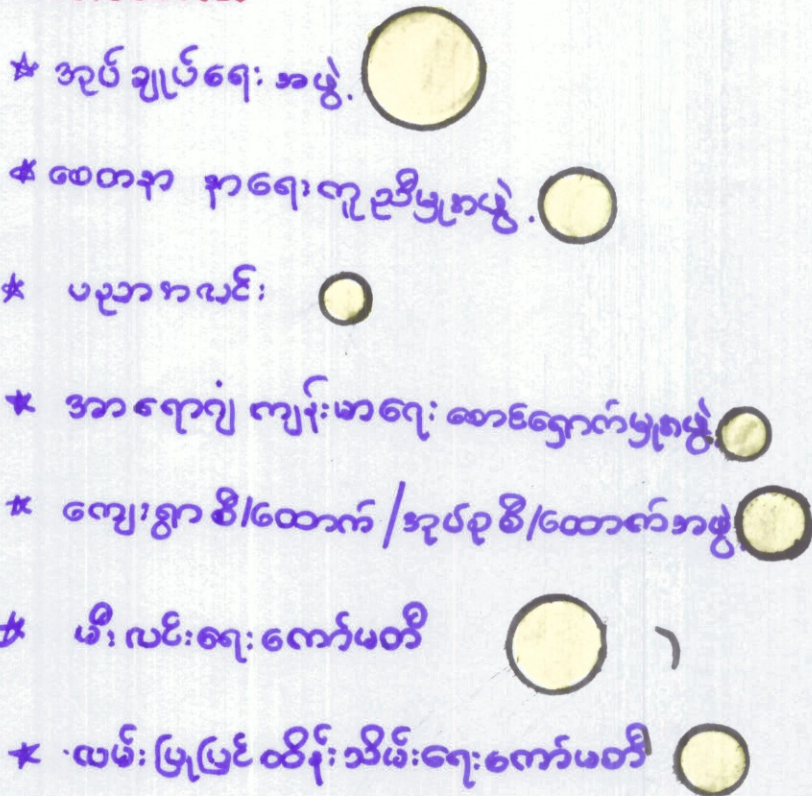 ★ အုပ်ချုပ်ရေး အဖွဲ့
★ စေတနာ နာရေးကူညီမှုအဖွဲ့
★ ပညာအလင်း
★ အာရောဂျံ ကျန်းမာရေး စောင့်ရှောက်မှုအဖွဲ့
★ ကျေးရွာ စီ/ထောက် / အုပ်စု စီ/ထောက်အဖွဲ့
★ မီးလင်းရေးကော်မတီ
★ လမ်းပြုပြင်ထိန်းသိမ်းရေးကော်မတီ